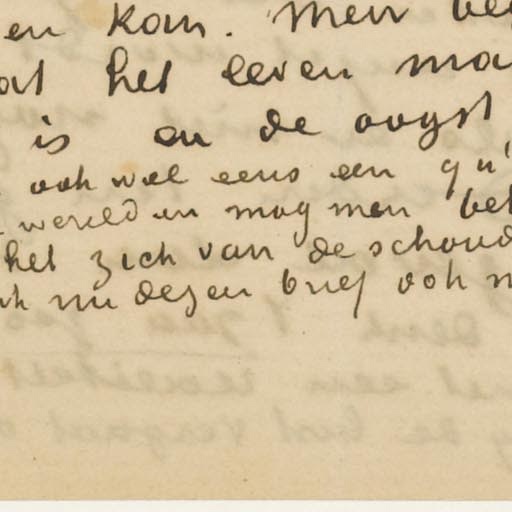 en kan. Men be
at het leven ma
is en de oogst
ook wel eens een
wereld en mag men bet
het zich van de schoud
nu dezen brief ook